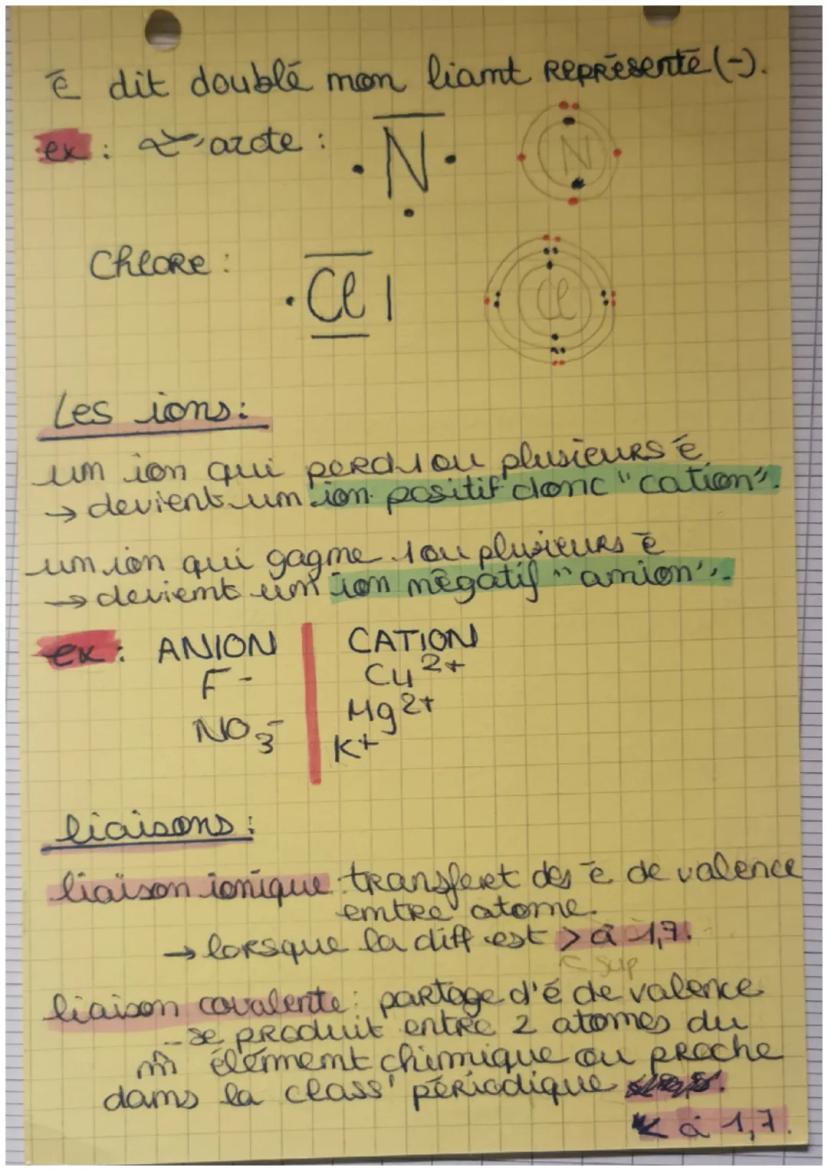 ē dit doublé non liant représenté (-).
ex: azote : · N ·
N
Chlore : · Cl |
Cl
Les ions:
un ion qui perd 1 ou plusieurs ē
→ devient un ion positif donc "cation".
un ion qui gagne 1 ou plusieurs ē
→ devient un ion négatif "anion".
ex: ANION CATION
F⁻ Cu²⁺
NO₃⁻ Mg²⁺
K⁺
liaisons:
liaison ionique: transfert des ē de valence
entre atome.
→ lorsque la diff est > à 1,7.
sup
liaison covalente: partage d'ē de valence
se produit entre 2 atomes du
m̂ élément chimique ou proche
dans la class' périodique
< à 1,7.